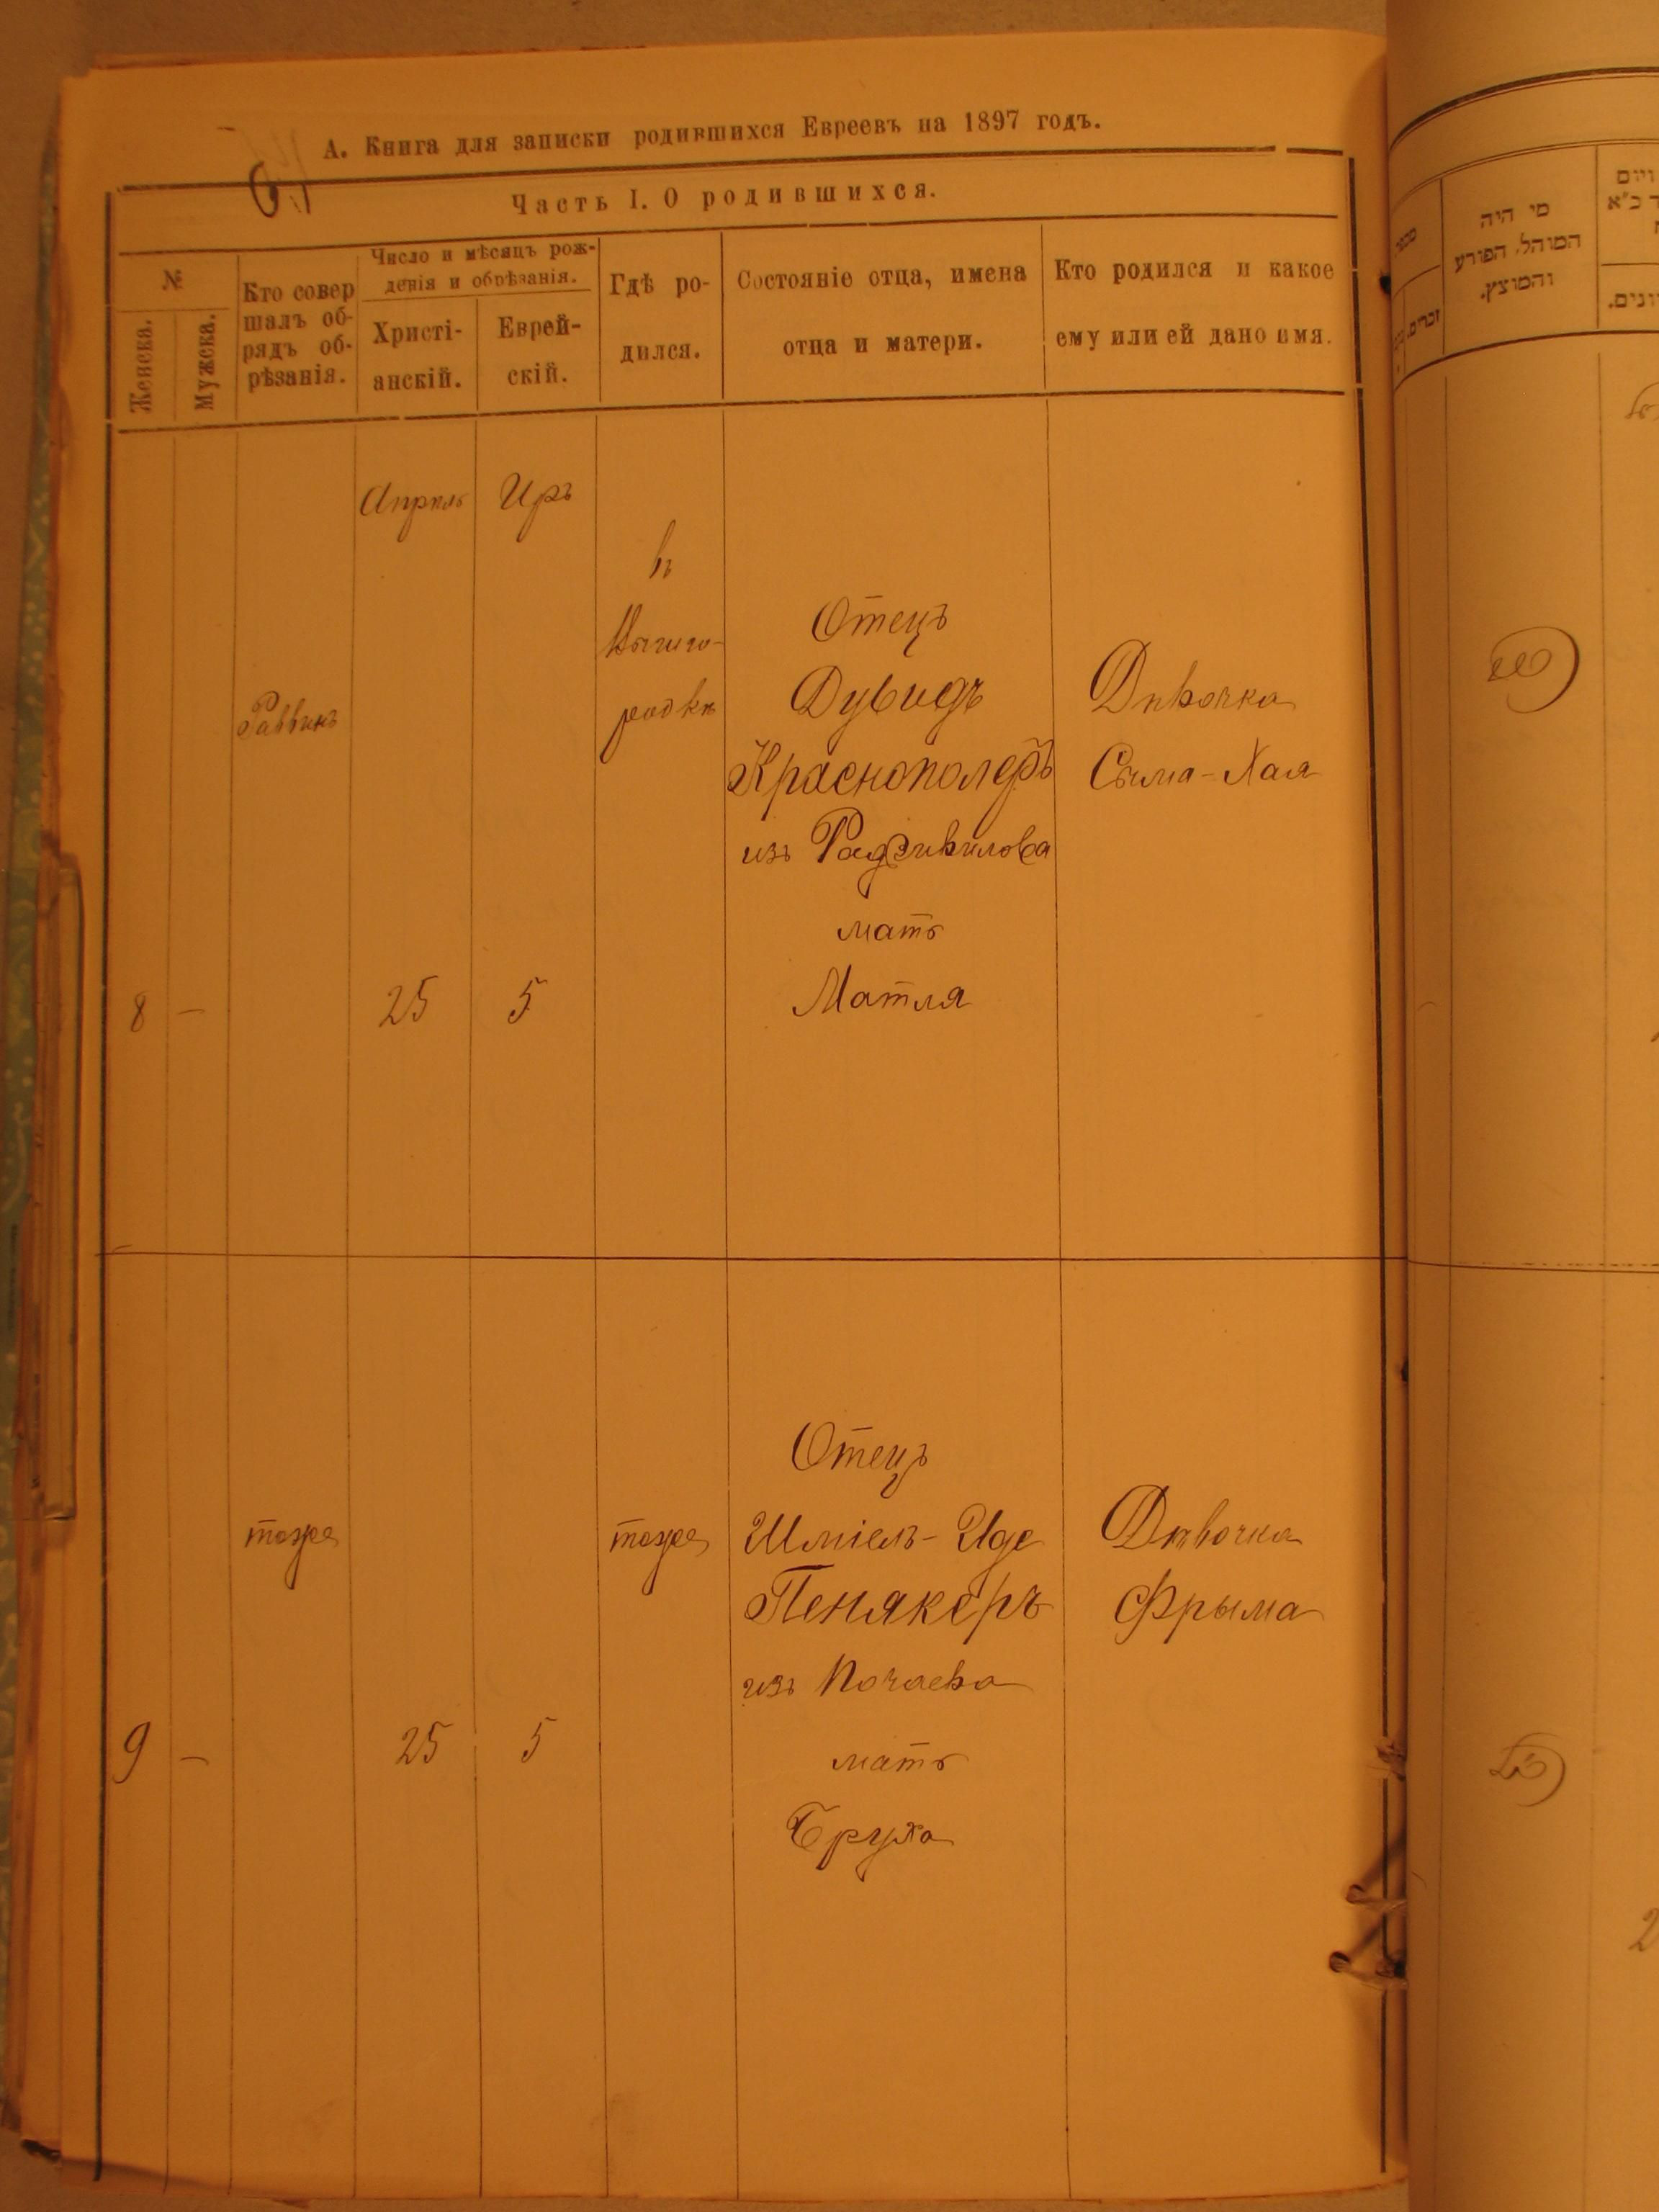 А. Книга для записки родившихся Евреевъ на 1897 годъ.
Часть I. О родившихся.
№
Женска.
Мужска.
Кто совер
шалъ об-
рядъ об-
рѣзанія.
Число и мѣсяцъ рож-
денія и обрѣзанія.
Христі-
анскій.
Еврей-
скій.
Гдѣ ро-
дился.
Состояніе отца, имена
отца и матери.
Кто родился и какое
ему или ей дано имя.
8
—
Раввинъ
Апрель
25
Иръ
5
въ
родкѣ
Отецъ
Дувидъ
Краснополеръ
изъ Радзивилова
мать
Матля
Дѣвочка
Сыма-Хая
9
—
тоже
25
5
тоже
Отецъ
Шміель-Иде
Пенякеръ
изъ Почаева
мать
Бруха
Дѣвочка
Фрыма
מספר
זכרים.
מי היה
המוהל. הפורע
והמוצץ.